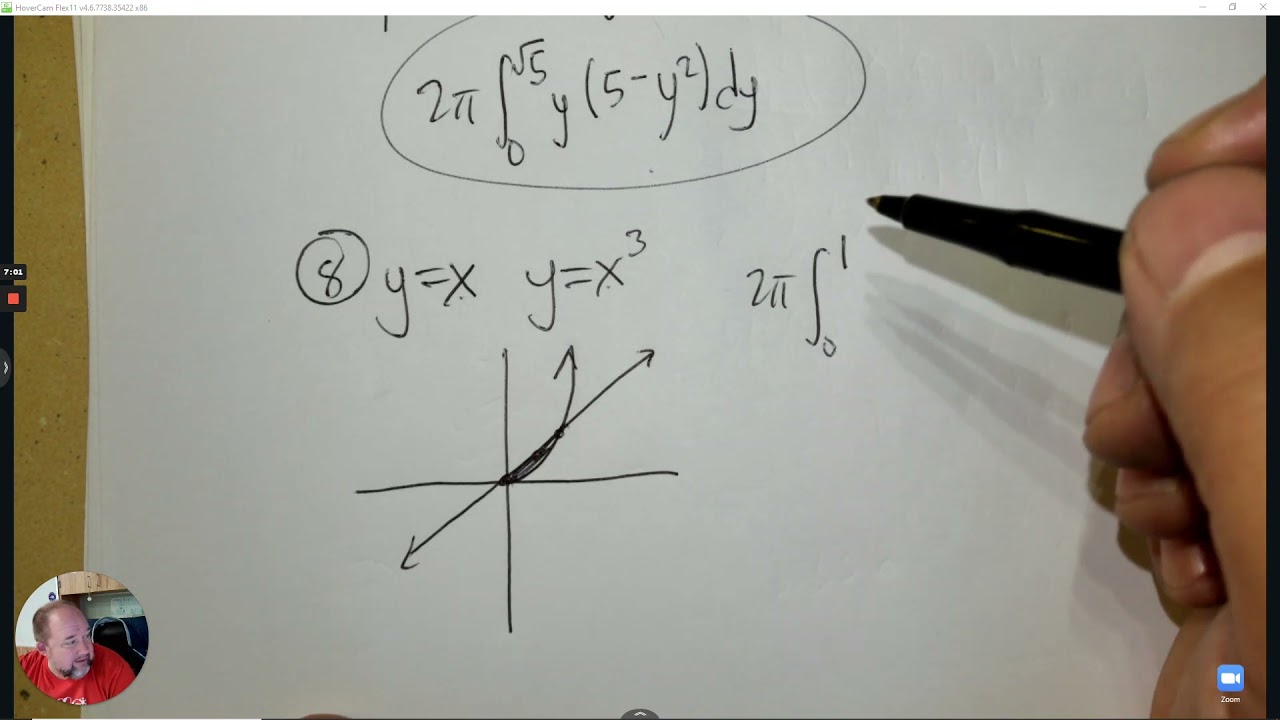 HoverCam Flex11 v4.6.7738.35422 x86
2π ∫₀^√5 y (5 - y²) dy
7:01
⑧ y = x y = x³ 2π ∫₀¹
Zoom